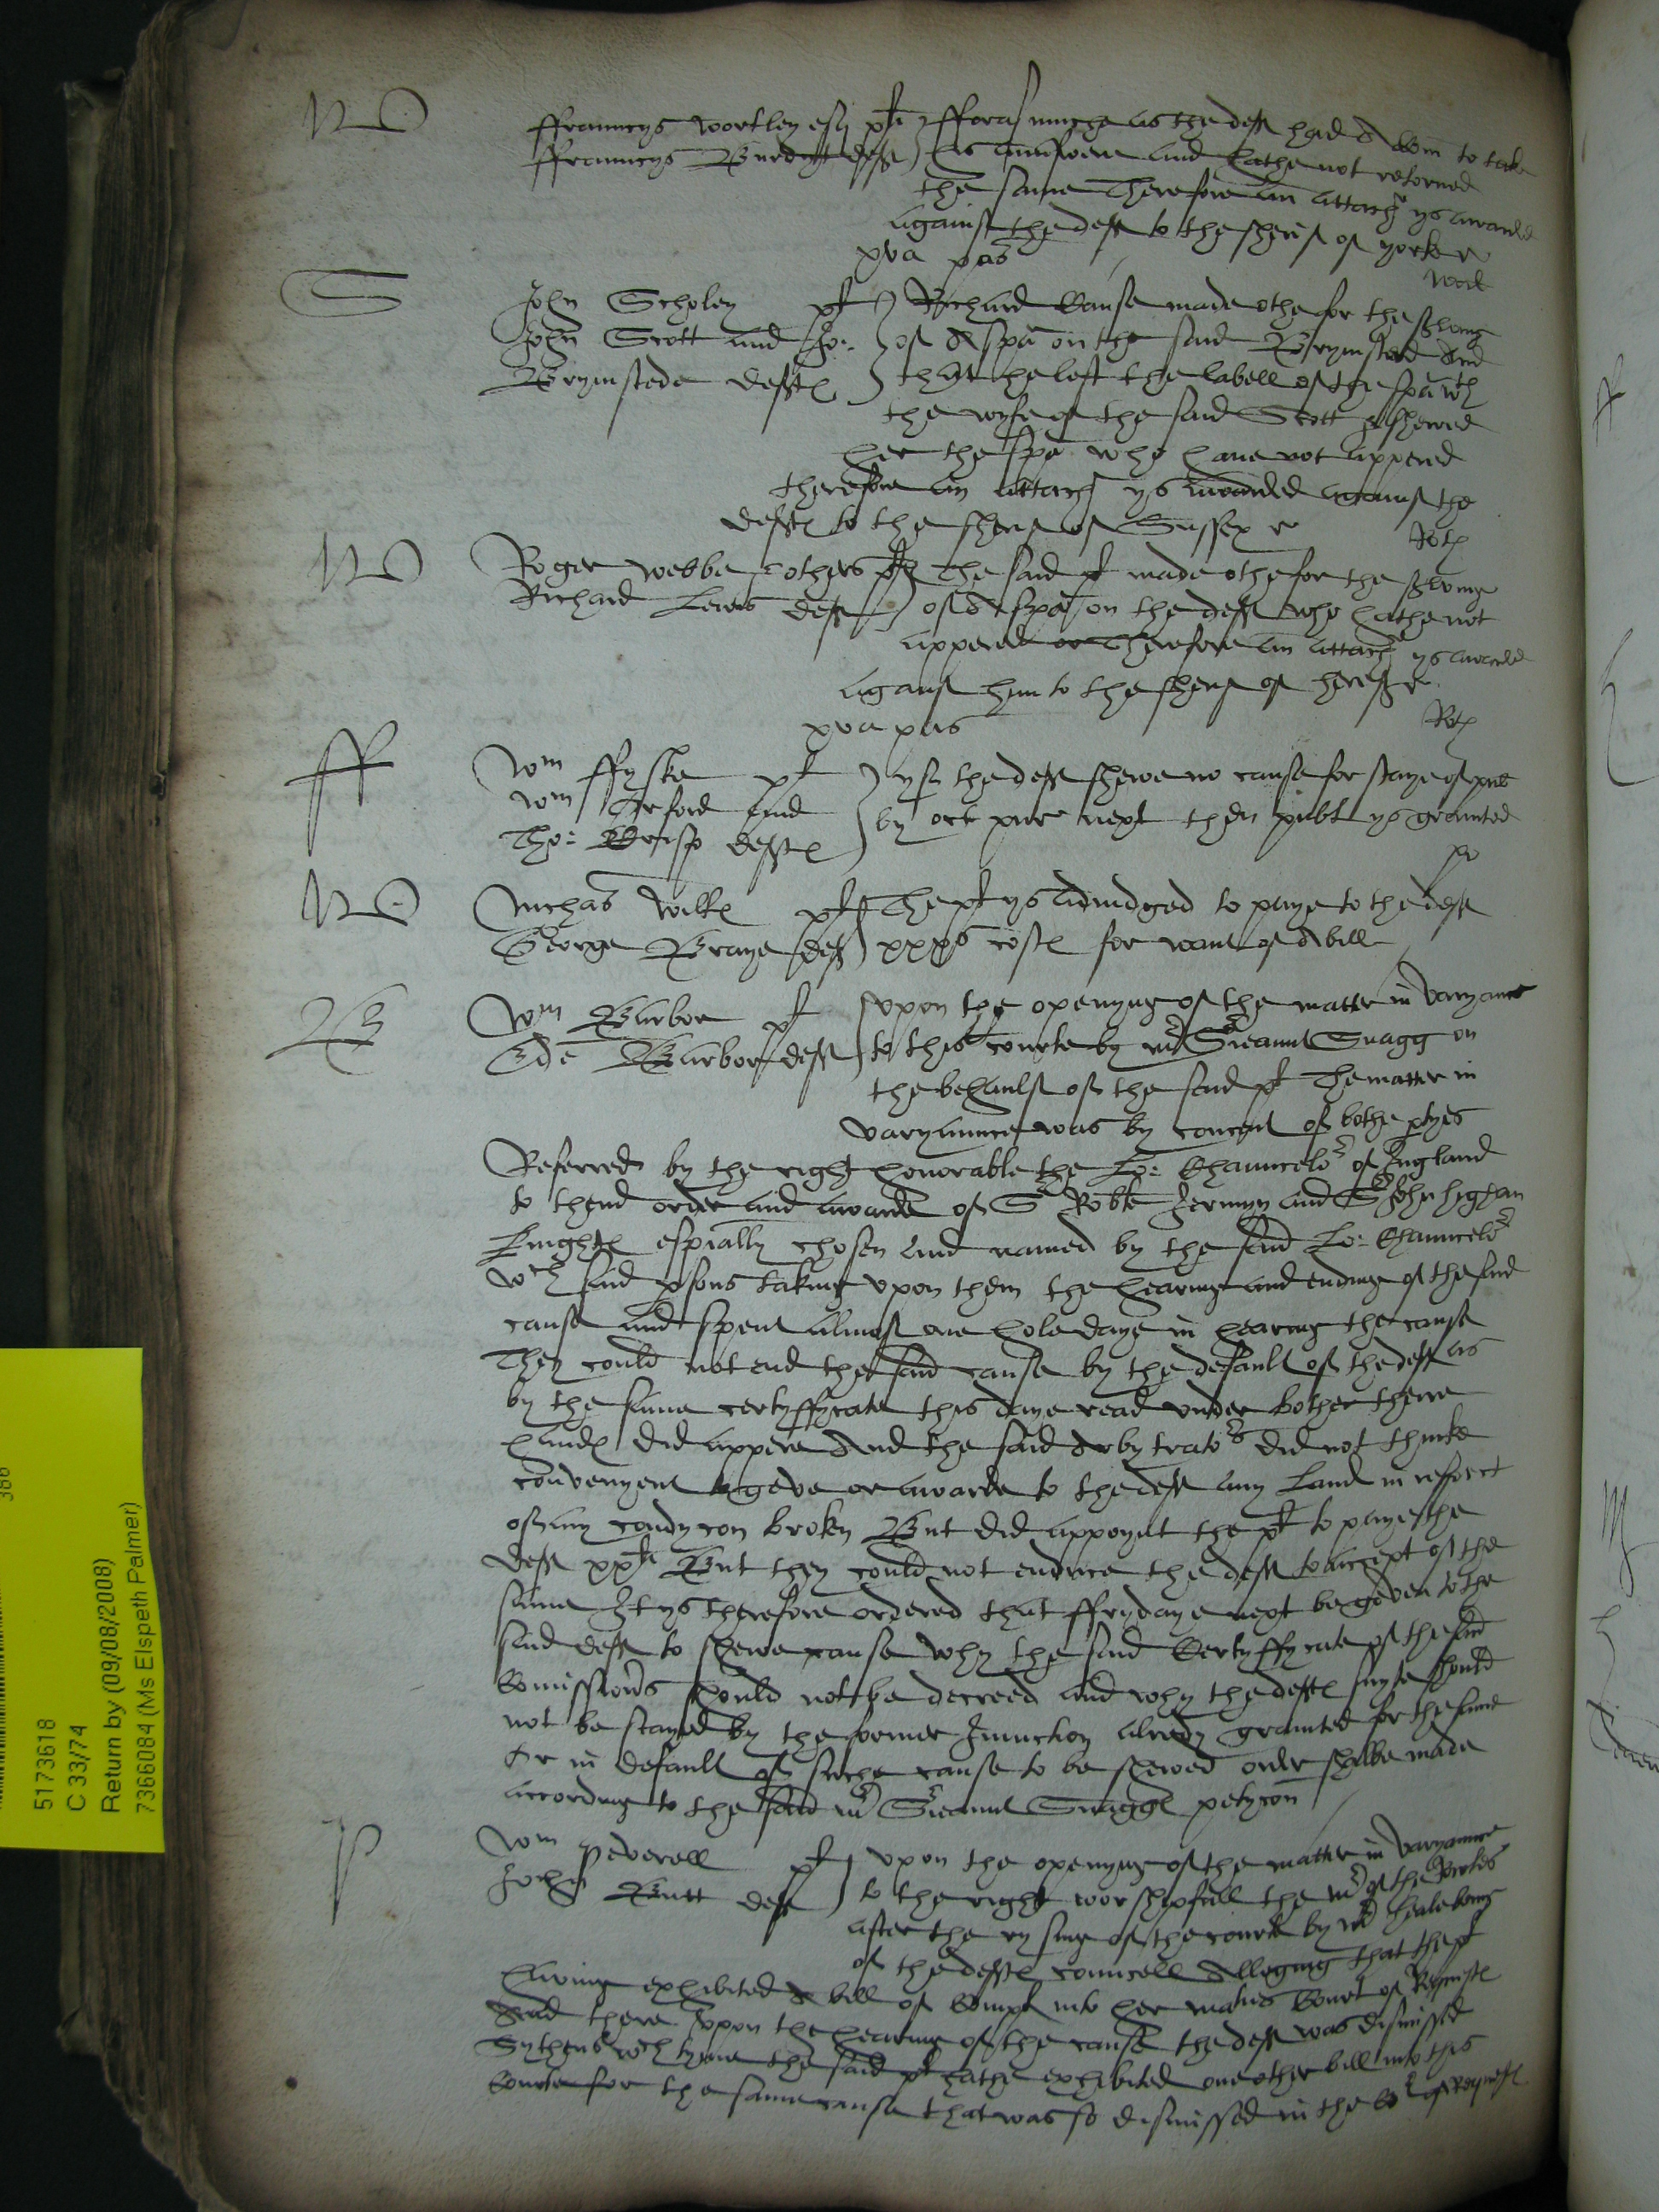 W
ffrauncys Wortley esq pl ffora smuche as the deft had a com to take
ffrauncys Burdytt deft his aunswere and hathe not retorned
the same Therefore an attach ys awarded
against the deft to the sherif of yorke
xva pas
S
John Scholey pl Richard made othe for the
John Scott and Jo: of A spa on the said Brymsted And
Brymstede deftes that he left the labell of the spa wth
the wyfe of the said Scott shewed
her the spa who have not appered
therefore an attach ys awarded against the
deftes to the sherif of Sussex
W
Roger Webbe others pl The said pl made othe for the
Richard Lewes deft of A spa on the deft who hathe not
appered Therefore an attach ys awarded
against him to the sherif of
xva pas
ff
Wm ffyske pl yf the deft shewe no cause for staye of pub
Wm Arford and by oct pur next then publ ys graunted
Tho: Crisp deftes
W
Nichas Wilkes pl The pl ys adiudged to paye to the deft
George Braye deft xxxs costes for want of A bill
B
Wm Barbor pl upon the openyng of the matter in varyance
Ede Barbor deft to this courte by mr Sieaunt Snagg on
the behaulf of the said pl The matter in
varyaunce was by concent of bothe ptyes
Referred by the right honorable the Lo: Chauncelor of England
to thend order and awarde of Sr Robte Jermyn and Sr John higham
knightes espially chosen and named by the said Lo: Chauncelor
wch said psons taking upon them the hearing and ending of the said
cause and spent almost one hole daye in hearing the cause
They could not end the said cause by the default of the deft as
by the same certyffycate this daye read under bothe there
handes did appere And the said Arbytrators did not thinke
convenyent to geve or awarde to the deft any Land in respect
of any condycon broken But did appoynt the pl to paye the
deft xxli But they could not enduce the deft to accept of the
same It ys therefore ordered that ffrydaye next be geven to the
said deft to shewe cause why the said Certyffycate of the said
Comissioners should not be decreed and why the deftes suyte should
not be stayed by the former Iniuncton alredy graunted for the same
Or in default of suche cause to be shewed order shalbe made
according to the said mr Sieaunt Snagges petycon
P
Wm Peverell pl upon the openyng of the matter in varyaunce
John Butt deft to the right worshipfull the mr of the Rowles
after the rysing of the courte by mr
of the deftes councell Alleging that the pl
having exhibited A bill of Complt into her maties Court of Requestes
And there upon the hearing of the cause the deft was dismissed
Sythens wch tyme the said pl hathe exhibited one other bill into this
Courte for the same cause that was so dismissed in the Cort of Requestes
5173618
C 33/74
Return by (09/08/2008)
7366084 (Ms Elspeth Palmer)